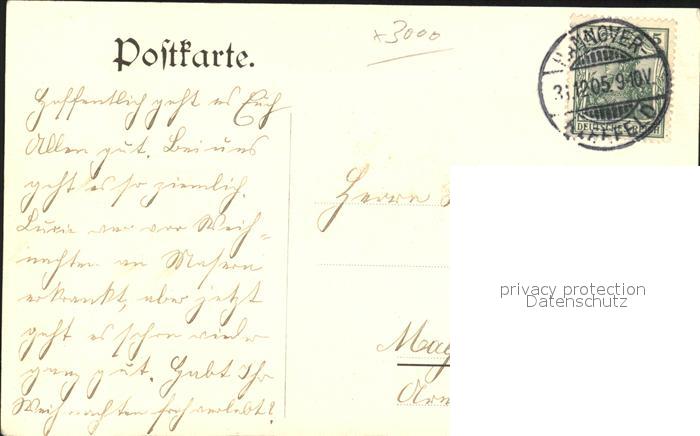 x3000
Postkarte.
HANNOVER
5
31.12.05.9-10V.
DEUTSCHES REICH
Hoffentlich geht es Euch
Allen gut. Bei uns
geht es so ziemlich.
Luzie war vor Weih=
nachten an Masern
erkrankt, aber jetzt
geht es schon wieder
ganz gut. Habt Ihr
Weihnachten froh verlebt?
Herrn
Mag
privacy protection
Datenschutz